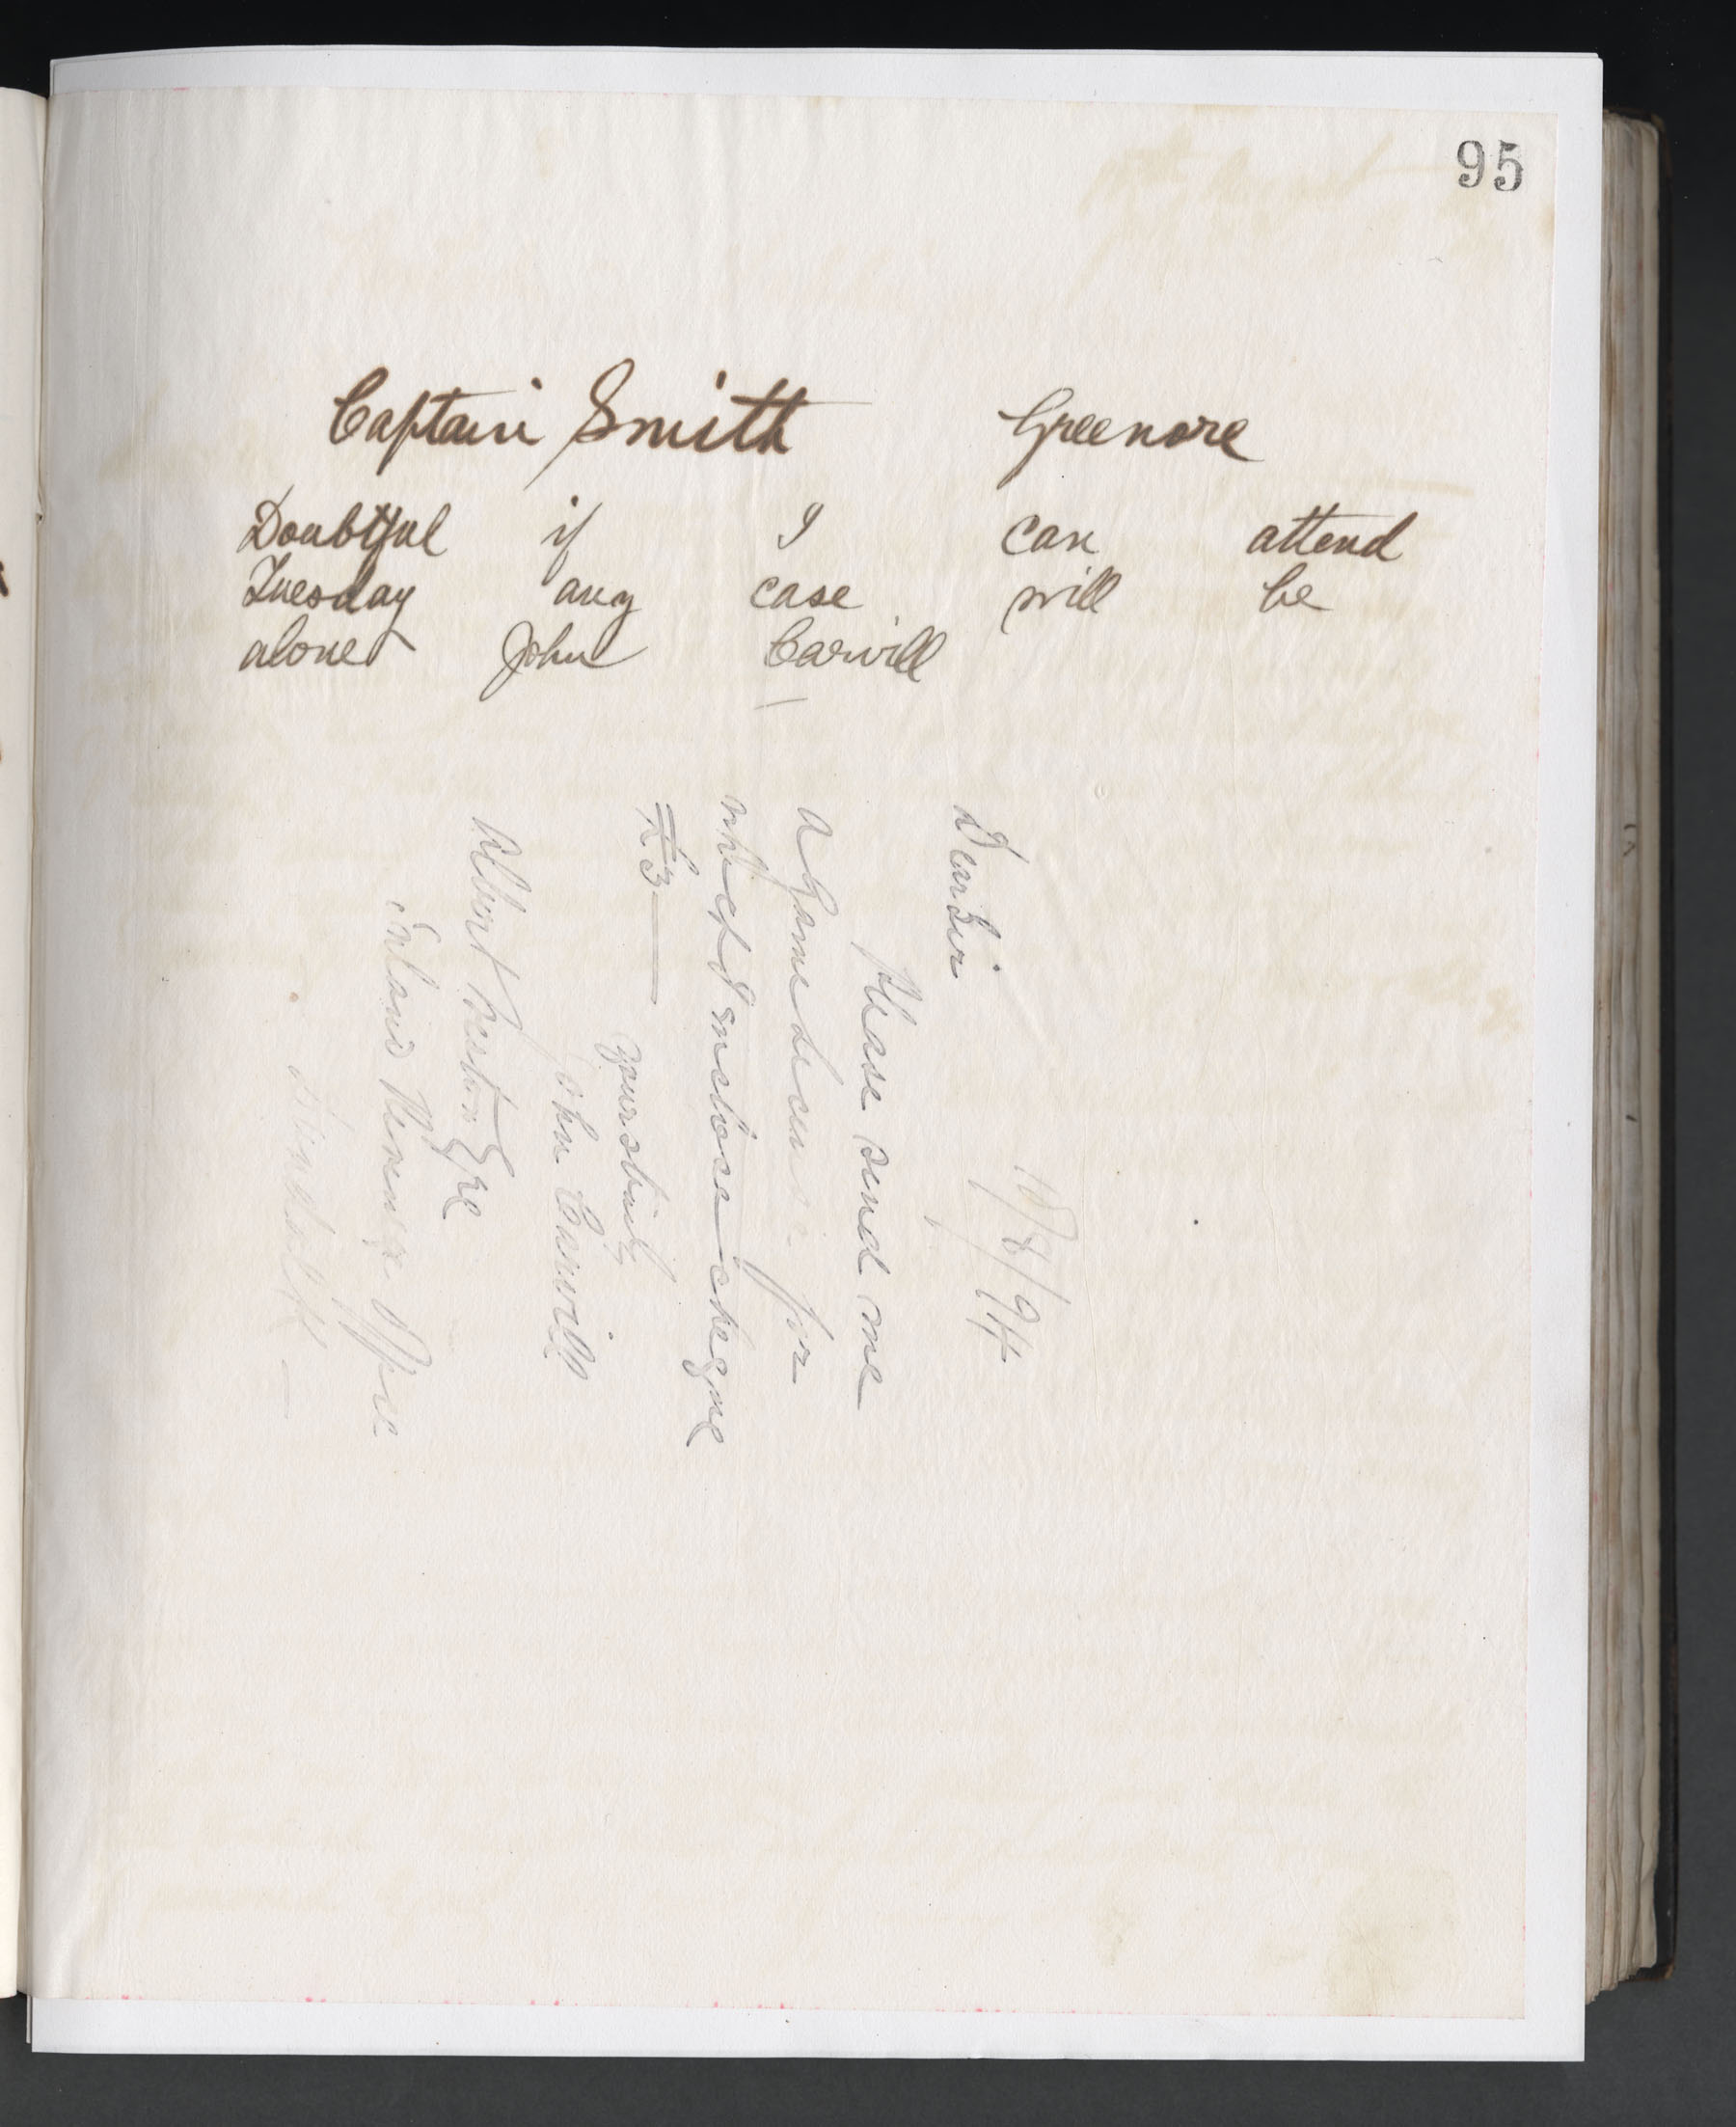 95
Captain Smith Greenore
Doubtful if I can attend
Tuesday any case will be
alone John Carvill
18/8/94
Dear Sir
Please send me
a Game License for
which I inclose cheque
£3
yours truly
John Carvill
Albert Esqre
Inland Revenue Office
Dundalk